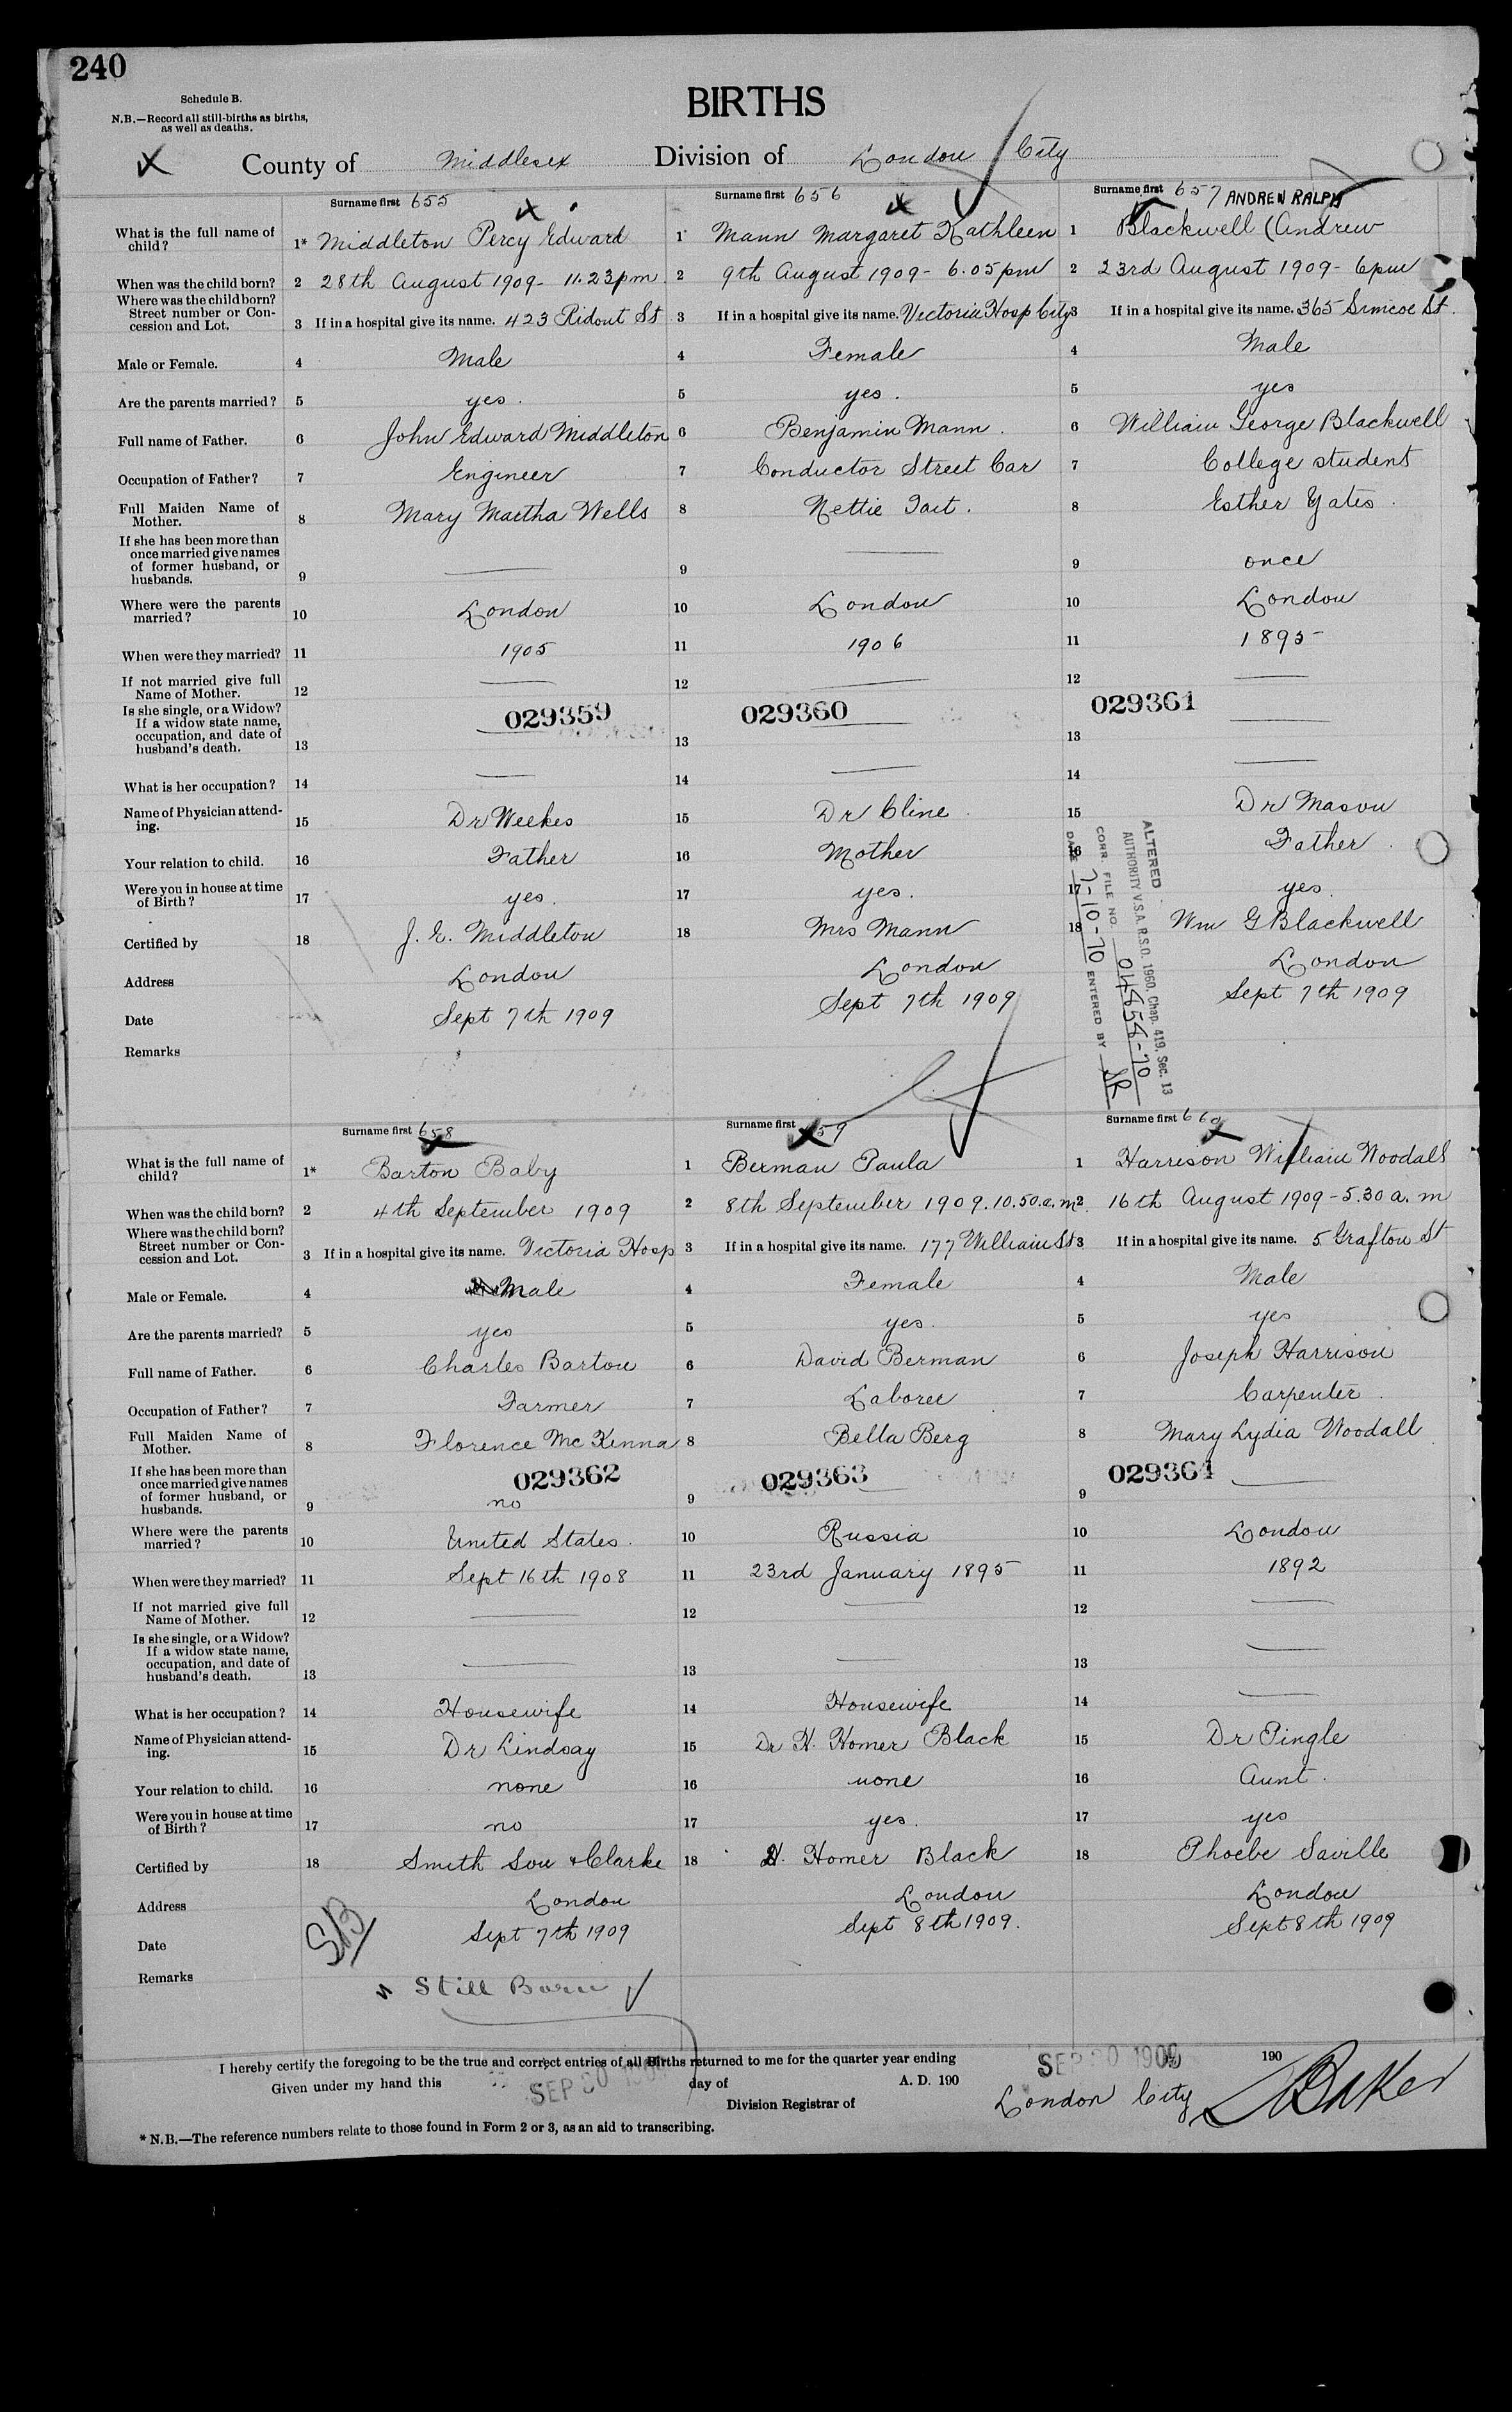 240
Schedule B.
N.B.—Record all still-births as births,
as well as deaths.
BIRTHS
County of Middlesex Division of London City
Surname first 655 Surname first 656 Surname first 657 ANDREW RALPH
What is the full name of child? 1* Middleton Percy Edward 1 Mann Margaret Kathleen 1 Blackwell (Andrew
When was the child born? 2 28th August 1909 - 11.23pm. 2 9th August 1909 - 6.05pm 2 23rd August 1909 - 6pm
Where was the child born? Street number or Concession and Lot. 3 If in a hospital give its name. 423 Ridout St 3 If in a hospital give its name. Victoria Hosp City 3 If in a hospital give its name. 365 Simcoe St.
Male or Female. 4 Male 4 Female 4 Male
Are the parents married? 5 yes. 5 yes. 5 yes
Full name of Father. 6 John Edward Middleton 6 Benjamin Mann. 6 William George Blackwell
Occupation of Father? 7 Engineer 7 Conductor Street Car 7 College student
Full Maiden Name of Mother. 8 Mary Martha Wells 8 Nettie Tait. 8 Esther Yates.
If she has been more than once married give names of former husband, or husbands. 9 — 9 — 9 once
Where were the parents married? 10 London 10 London 10 London
When were they married? 11 1905 11 1906 11 1895
If not married give full Name of Mother. 12 — 12 — 12 —
029359 029360 029361
Is she single, or a Widow? If a widow state name, occupation, and date of husband's death. 13 — 13 — 13 —
What is her occupation? 14 — 14 — 14 —
Name of Physician attending. 15 Dr Weekes 15 Dr Cline. 15 Dr Mason
Your relation to child. 16 Father 16 Mother 16 Father.
Were you in house at time of Birth? 17 yes. 17 yes. 17 yes.
Certified by 18 J. E. Middleton 18 Mrs Mann 18 Wm G Blackwell
Address London London London
Date Sept 7th 1909 Sept 7th 1909 Sept 7th 1909
Remarks
ALTERED
AUTHORITY V.S.A. R.S.O. 1960, Chap. 419, Sec. 13
CORR. FILE NO.
DATE 7-10-70 ENTERED BY
Surname first 658 Surname first 659 Surname first 660
What is the full name of child? 1* Barton Baby 1 Berman Paula 1 Harrison William Woodall
When was the child born? 2 4th September 1909 2 8th September 1909. 10.50.a.m 2 16th August 1909 - 5.30 a.m
Where was the child born? Street number or Concession and Lot. 3 If in a hospital give its name. Victoria Hosp 3 If in a hospital give its name. 177 William St 3 If in a hospital give its name. 5 Grafton St
Male or Female. 4 Male 4 Female 4 Male
Are the parents married? 5 yes 5 yes. 5 yes
Full name of Father. 6 Charles Barton 6 David Berman 6 Joseph Harrison
Occupation of Father? 7 Farmer 7 Laborer 7 Carpenter.
Full Maiden Name of Mother. 8 Florence McKenna 8 Bella Berg 8 Mary Lydia Woodall
029362 029363 029364
If she has been more than once married give names of former husband, or husbands. 9 no 9 — 9 —
Where were the parents married? 10 United States. 10 Russia 10 London
When were they married? 11 Sept 16th 1908 11 23rd January 1895 11 1892
If not married give full Name of Mother. 12 — 12 — 12 —
Is she single, or a Widow? If a widow state name, occupation, and date of husband's death. 13 — 13 — 13 —
What is her occupation? 14 Housewife 14 Housewife 14 —
Name of Physician attending. 15 Dr Lindsay 15 Dr H. Homer Black 15 Dr Pingle
Your relation to child. 16 none 16 none 16 Aunt.
Were you in house at time of Birth? 17 no 17 yes. 17 yes
Certified by 18 Smith Son & Clarke 18 H. Homer Black 18 Phoebe Saville
Address London London London
Date Sept 7th 1909 Sept 8th 1909. Sept 8th 1909
SB
Remarks Still Born
I hereby certify the foregoing to be the true and correct entries of all Births returned to me for the quarter year ending SEP 30 1909 190
Given under my hand this SEP 30 day of A. D. 190
Division Registrar of London City Baker
* N.B.—The reference numbers relate to those found in Form 2 or 3, as an aid to transcribing.